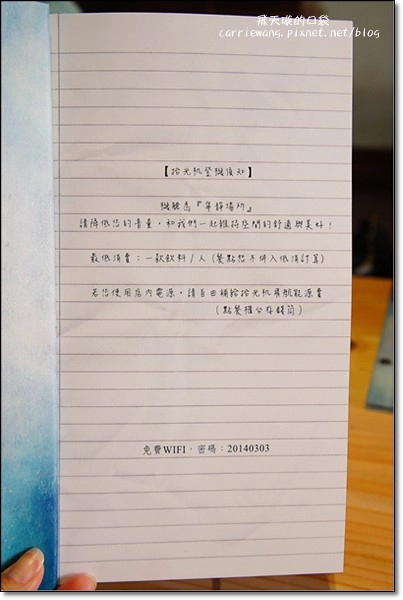 飛天璇的口袋
carriewang.pixnet.net/blog
【拾光机登機須知】
機艙為『寧靜場所』
請降低您的音量，和我們一起維持空間的舒適與美好！
最低消費：一款飲料/人(餐點恕不併入低消計算)
若您使用店內電源，請自由補給拾光机展航能源費
(點餐櫃台存錢筒)
免費WIFI，密碼：20140303